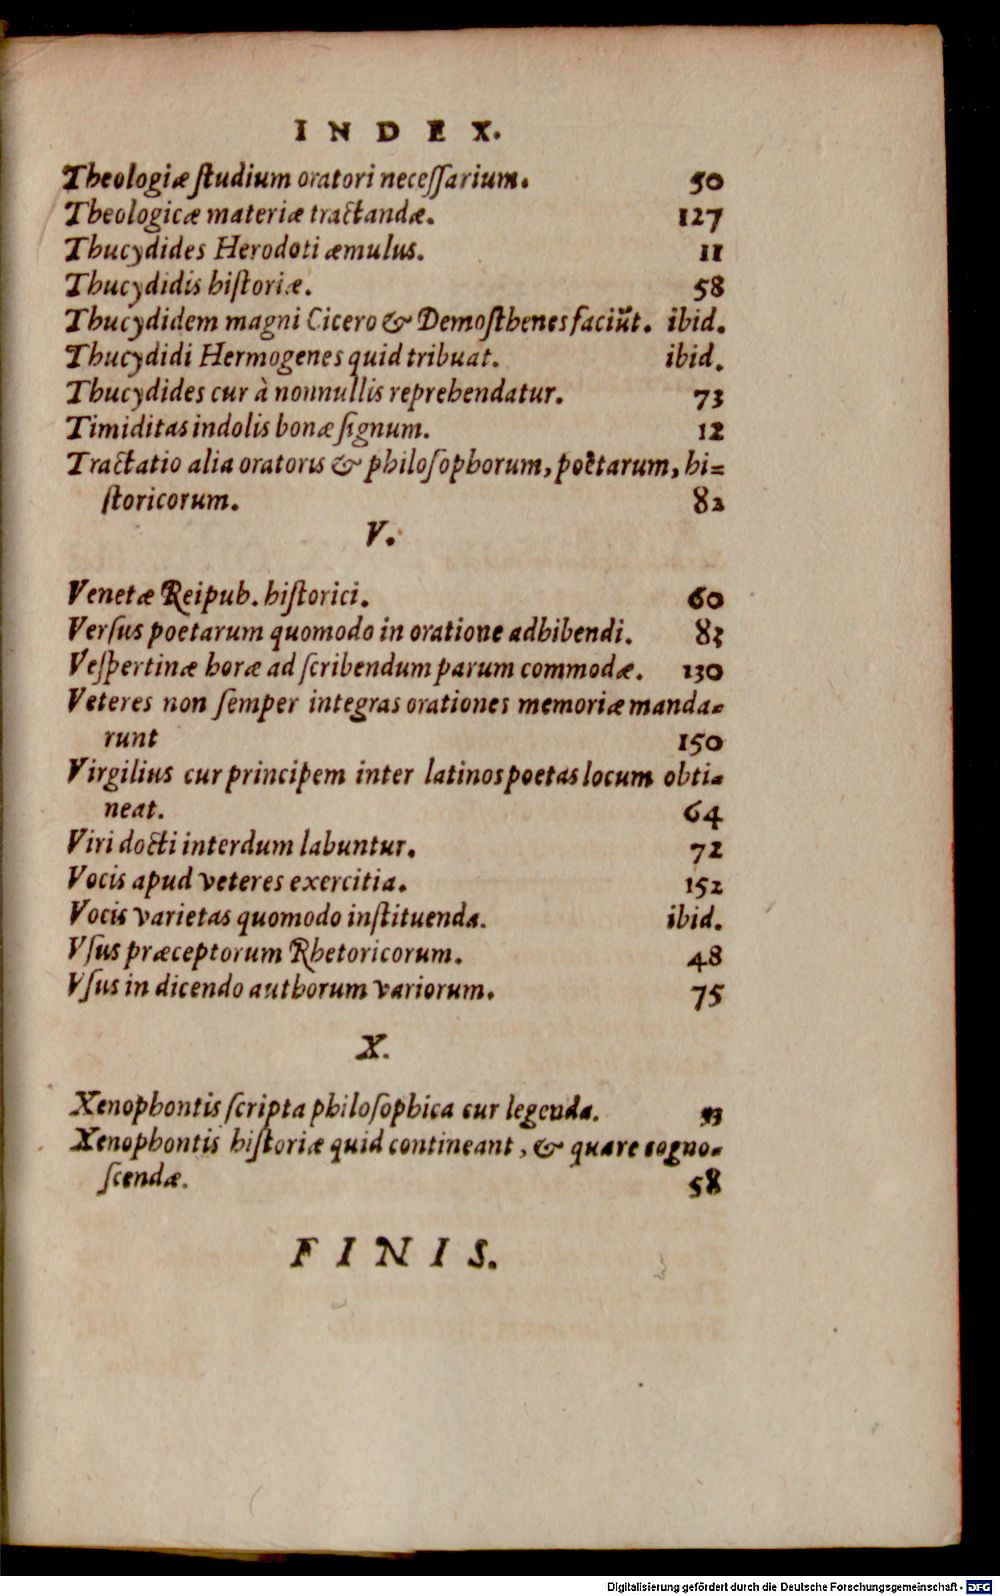 INDEX.
Theologiæ ſtudium oratori neceſſarium. 50
Theologicæ materiæ tractandæ. 127
Thucydides Herodoti æmulus. 11
Thucydidis hiſtoriæ. 58
Thucydidem magni Cicero & Demoſthenes faciũt. ibid.
Thucydidi Hermogenes quid tribuat. ibid.
Thucydides cur à nonnullis reprehendatur. 73
Timiditas indolis bonæ ſignum. 12
Tractatio alia oratoris & philoſophorum, poëtarum, hi=
ſtoricorum. 82
V.
Venetæ Reipub. hiſtorici. 60
Verſus poetarum quomodo in oratione adhibendi. 83
Veſpertinæ horæ ad ſcribendum parum commodæ. 130
Veteres non ſemper integras orationes memoriæ manda-
runt 150
Virgilius cur principem inter latinos poetas locum obti-
neat. 64
Viri docti interdum labuntur. 72
Vocis apud veteres exercitia. 152
Vocis varietas quomodo inſtituenda. ibid.
Vſus præceptorum Rhetoricorum. 48
Vſus in dicendo authorum variorum. 75
X.
Xenophontis ſcripta philoſophica cur legenda.
Xenophontis hiſtoriæ quid contineant, & quare cogno-
ſcendæ. 58
FINIS.
Digitalisierung gefördert durch die Deutsche Forschungsgemeinschaft - DFG